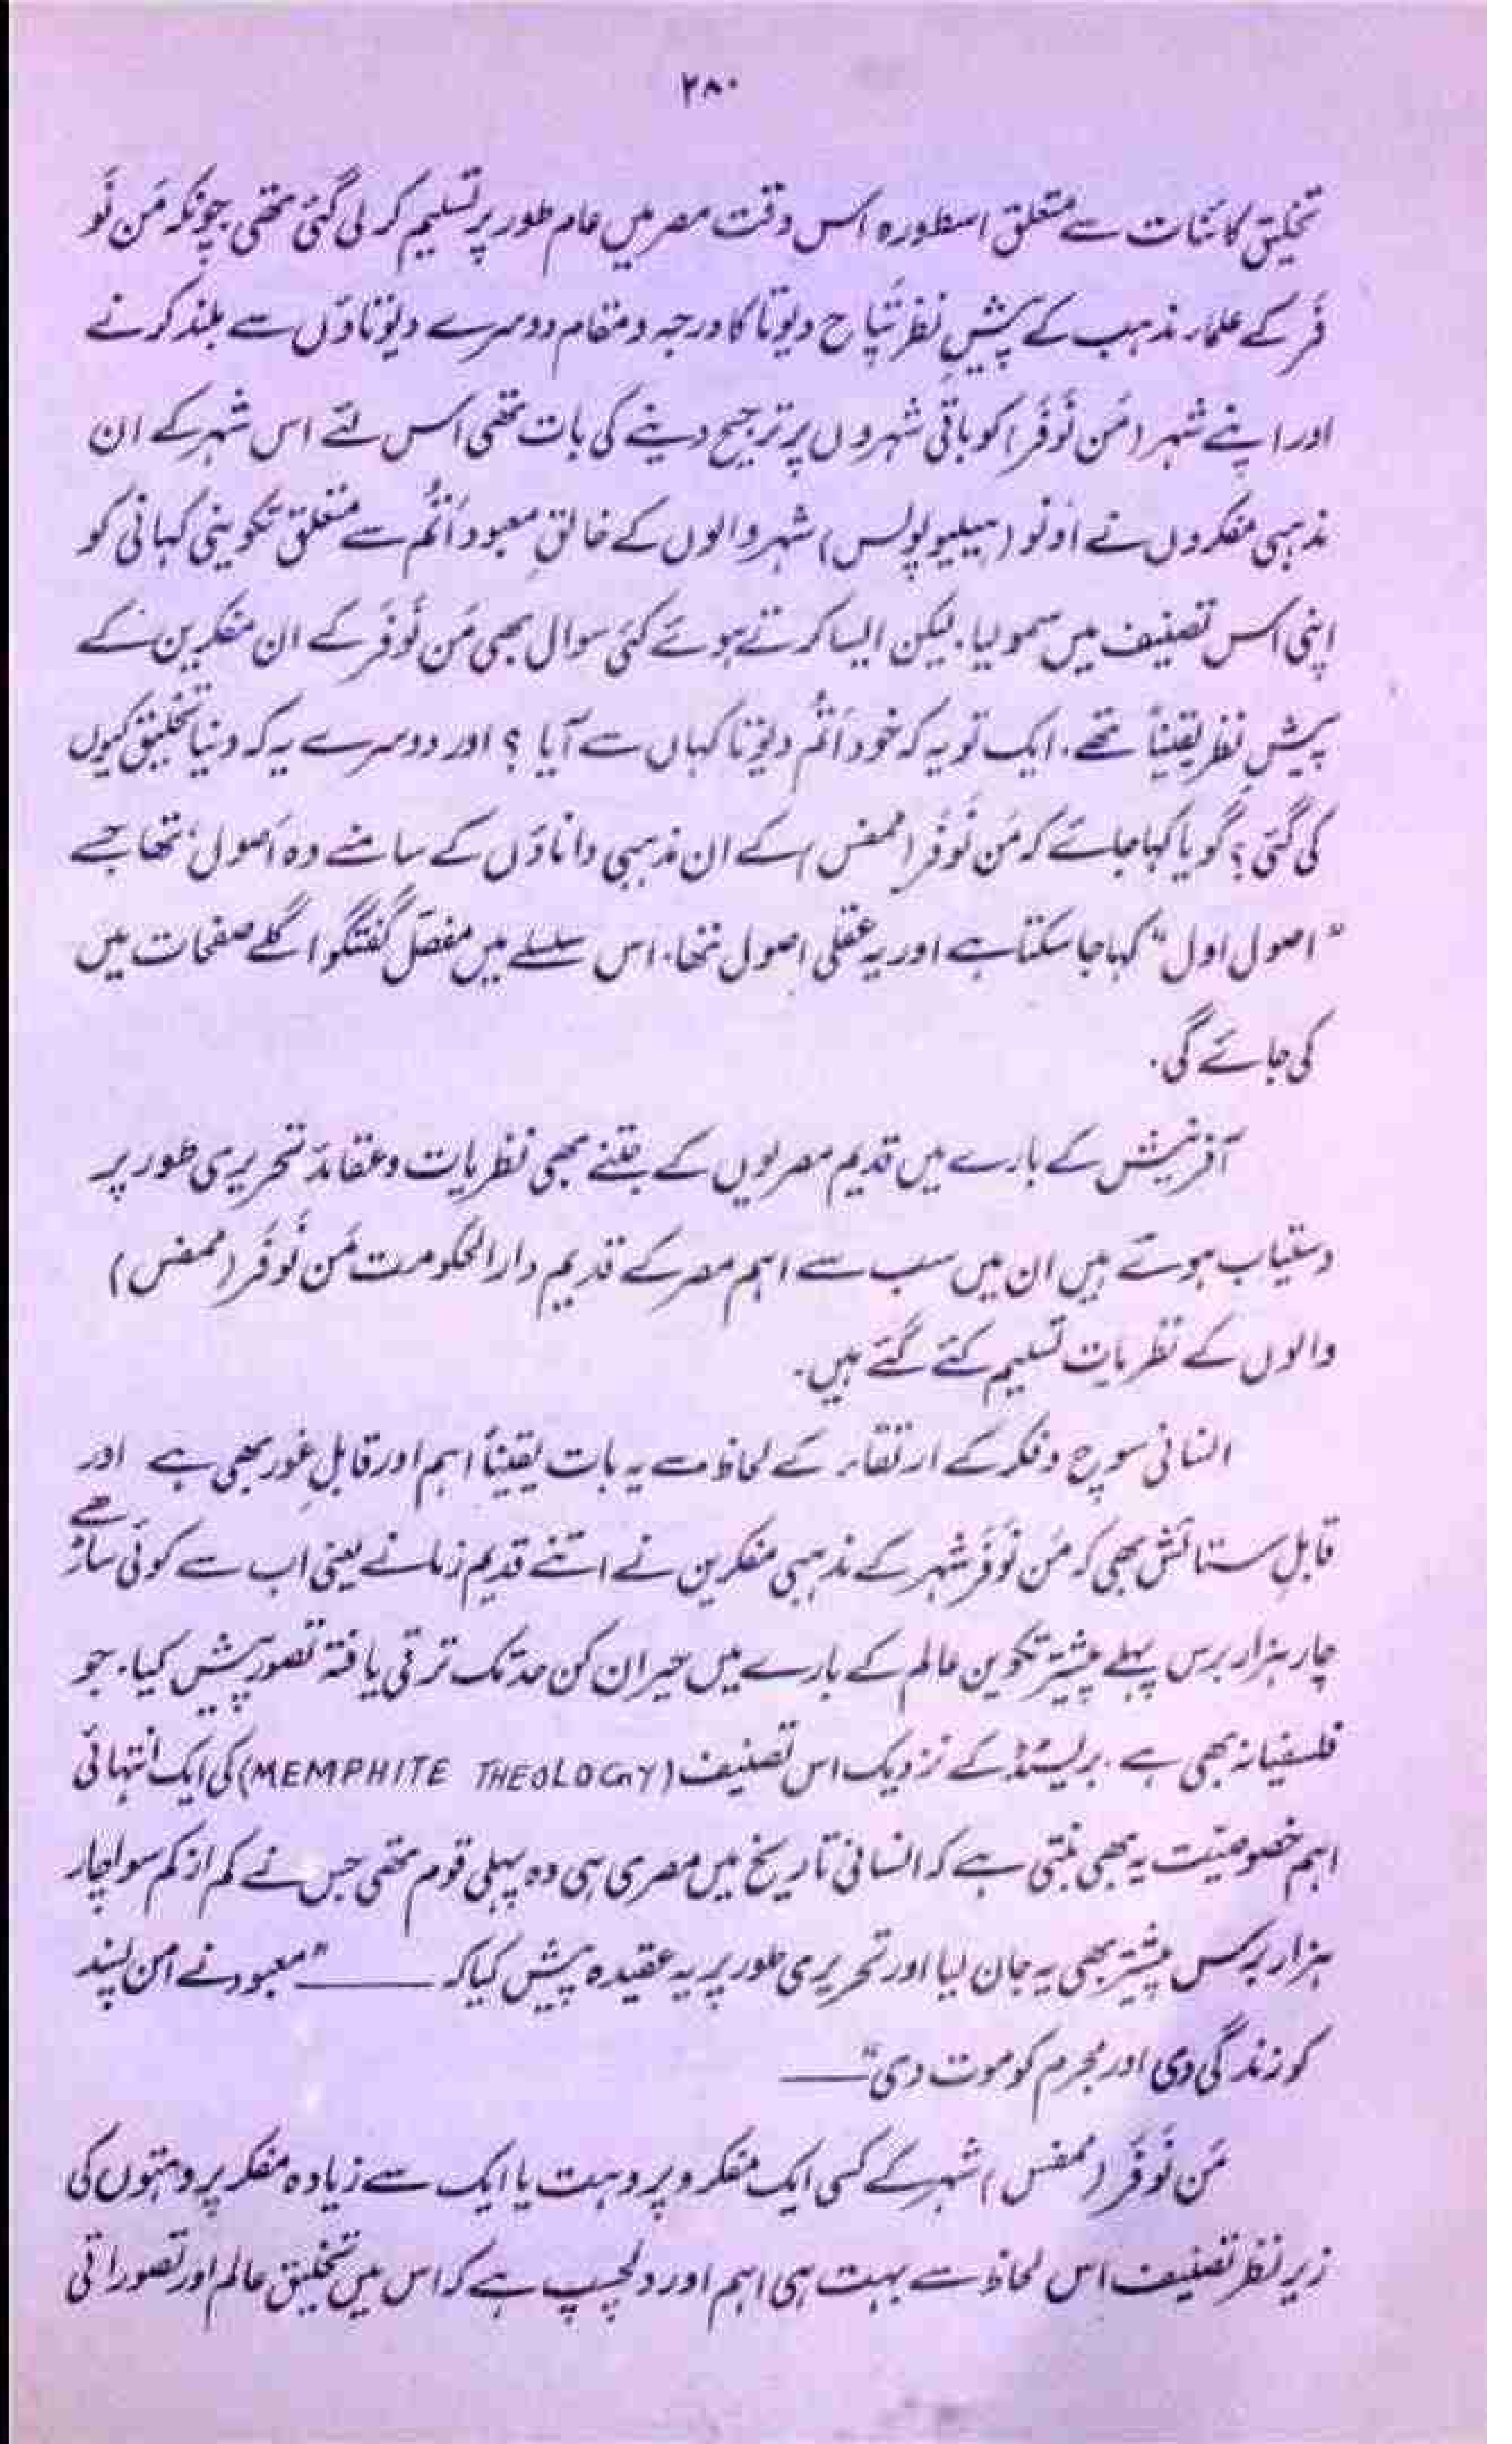 ۲۸۰
تخلیق کائنات سے متعلق اسطورہ اس وقت مصر میں عام طور پر تسلیم کر لی گئی تھی چونکہ مَن نَو
فَر کے علمائے مذہب کے پیشِ نظر پتاح دیوتا کا درجہ و مقام دوسرے دیوتاؤں سے بلند کرنے
اور اپنے شہر (مَن نَوفَر) کو باقی شہروں پر ترجیح دینے کی بات تھی اس لئے اس شہر کے ان
مذہبی مفکروں نے اونو (ہیلیوپولس) شہر والوں کے خالقِ معبود اُتُم سے متعلق تکوینی کہانی کو
اپنی اس تصنیف میں سمو لیا۔ لیکن ایسا کرتے ہوئے کئی سوال بھی مَن نَوفَر کے ان مفکرین کے
پیشِ نظر یقیناً تھے۔ ایک تو یہ کہ خود اَتُم دیوتا کہاں سے آیا ؟ اور دوسرے یہ کہ دنیا تخلیق کیوں
کی گئی ؟ گویا کہا جائے کہ مَن نَوفَر (ممفس) کے ان مذہبی داناؤں کے سامنے وہ اصول تھا جسے
"اصول اول" کہا جا سکتا ہے اور یہ عقلی اصول تھا۔ اس سلسلے میں مفصّل گفتگو اگلے صفحات میں
کی جائے گی۔
آفرینش کے بارے میں قدیم مصریوں کے جتنے بھی نظریات و عقائد تحریری طور پر
دستیاب ہوتے ہیں ان میں سب سے اہم مصر کے قدیم دارالحکومت مَن نَوفَر (ممفس)
والوں کے نظریات تسلیم کئے گئے ہیں۔
انسانی سوچ و فکر کے ارتقاء کے لحاظ سے یہ بات یقیناً اہم اور قابلِ غور بھی ہے اور
قابلِ ستائش بھی کہ مَن نَوفَر شہر کے مذہبی مفکرین نے اتنے قدیم زمانے یعنی اب سے کوئی ساڑھے
چار ہزار برس پہلے پیشتر تکوین عالم کے بارے میں حیران کن حد تک ترقی یافتہ تصور پیش کیا۔ جو
فلسفیانہ بھی ہے۔ بریسٹڈ کے نزدیک اس تصنیف (MEMPHITE THEOLOGY) کی ایک انتہائی
اہم خصوصیّت یہ بھی بنتی ہے کہ انسانی تاریخ میں مصری ہی وہ پہلی قوم تھی جس نے کم از کم سوا چار
ہزار برس پیشتر بھی یہ جان لیا اور تحریری طور پر یہ عقیدہ پیش کیا کہ ——— "معبود نے امن پسند
کو زندگی دی اور مجرم کو موت دی" ———
مَن نَوفَر (ممفس) شہر کے کسی ایک مفکر و پروہت یا ایک سے زیادہ مفکر پروہتوں کی
زیرِ نظر تصنیف اس لحاظ سے بہت ہی اہم اور دلچسپ ہے کہ اس میں تخلیق عالم اور تصوراتی